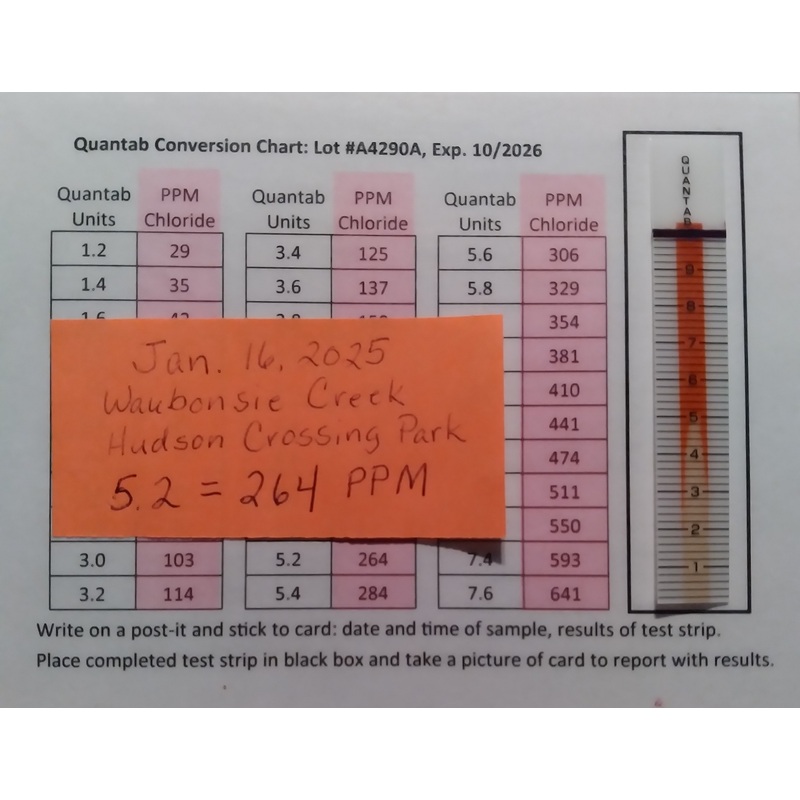 Quantab Conversion Chart: Lot #A4290A, Exp. 10/2026
Quantab Units PPM Chloride Quantab Units PPM Chloride Quantab Units PPM Chloride
1.2 29 3.4 125 5.6 306
1.4 35 3.6 137 5.8 329
354
381
410
441
474
511
550
3.0 103 5.2 264 7.4 593
3.2 114 5.4 284 7.6 641
Jan. 16, 2025
Waubonsie Creek
Hudson Crossing Park
5.2 = 264 PPM
QUANTAB
9
8
7
6
5
4
3
2
1
Write on a post-it and stick to card: date and time of sample, results of test strip.
Place completed test strip in black box and take a picture of card to report with results.